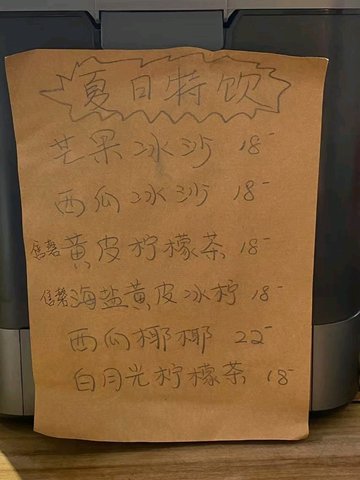 夏日特饮
芒果冰沙 18-
西瓜冰沙 18-
售罄 黄皮柠檬茶 18-
售罄 海盐黄皮冰柠 18-
西瓜椰椰 22-
白月光柠檬茶 18-